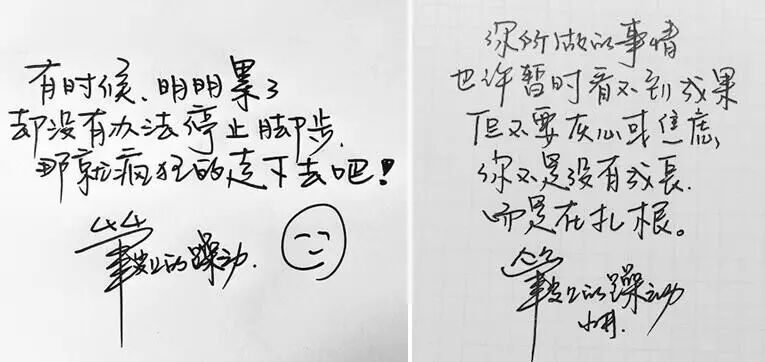 有时候、明明累了
却没有办法停止脚步.
那就疯狂的走下去吧!
笔尖上的躁动.
你所做的事情
也许暂时看不到成果
但不要灰心或焦虑,
你不是没有成长.
而是在扎根。
笔尖上的躁动